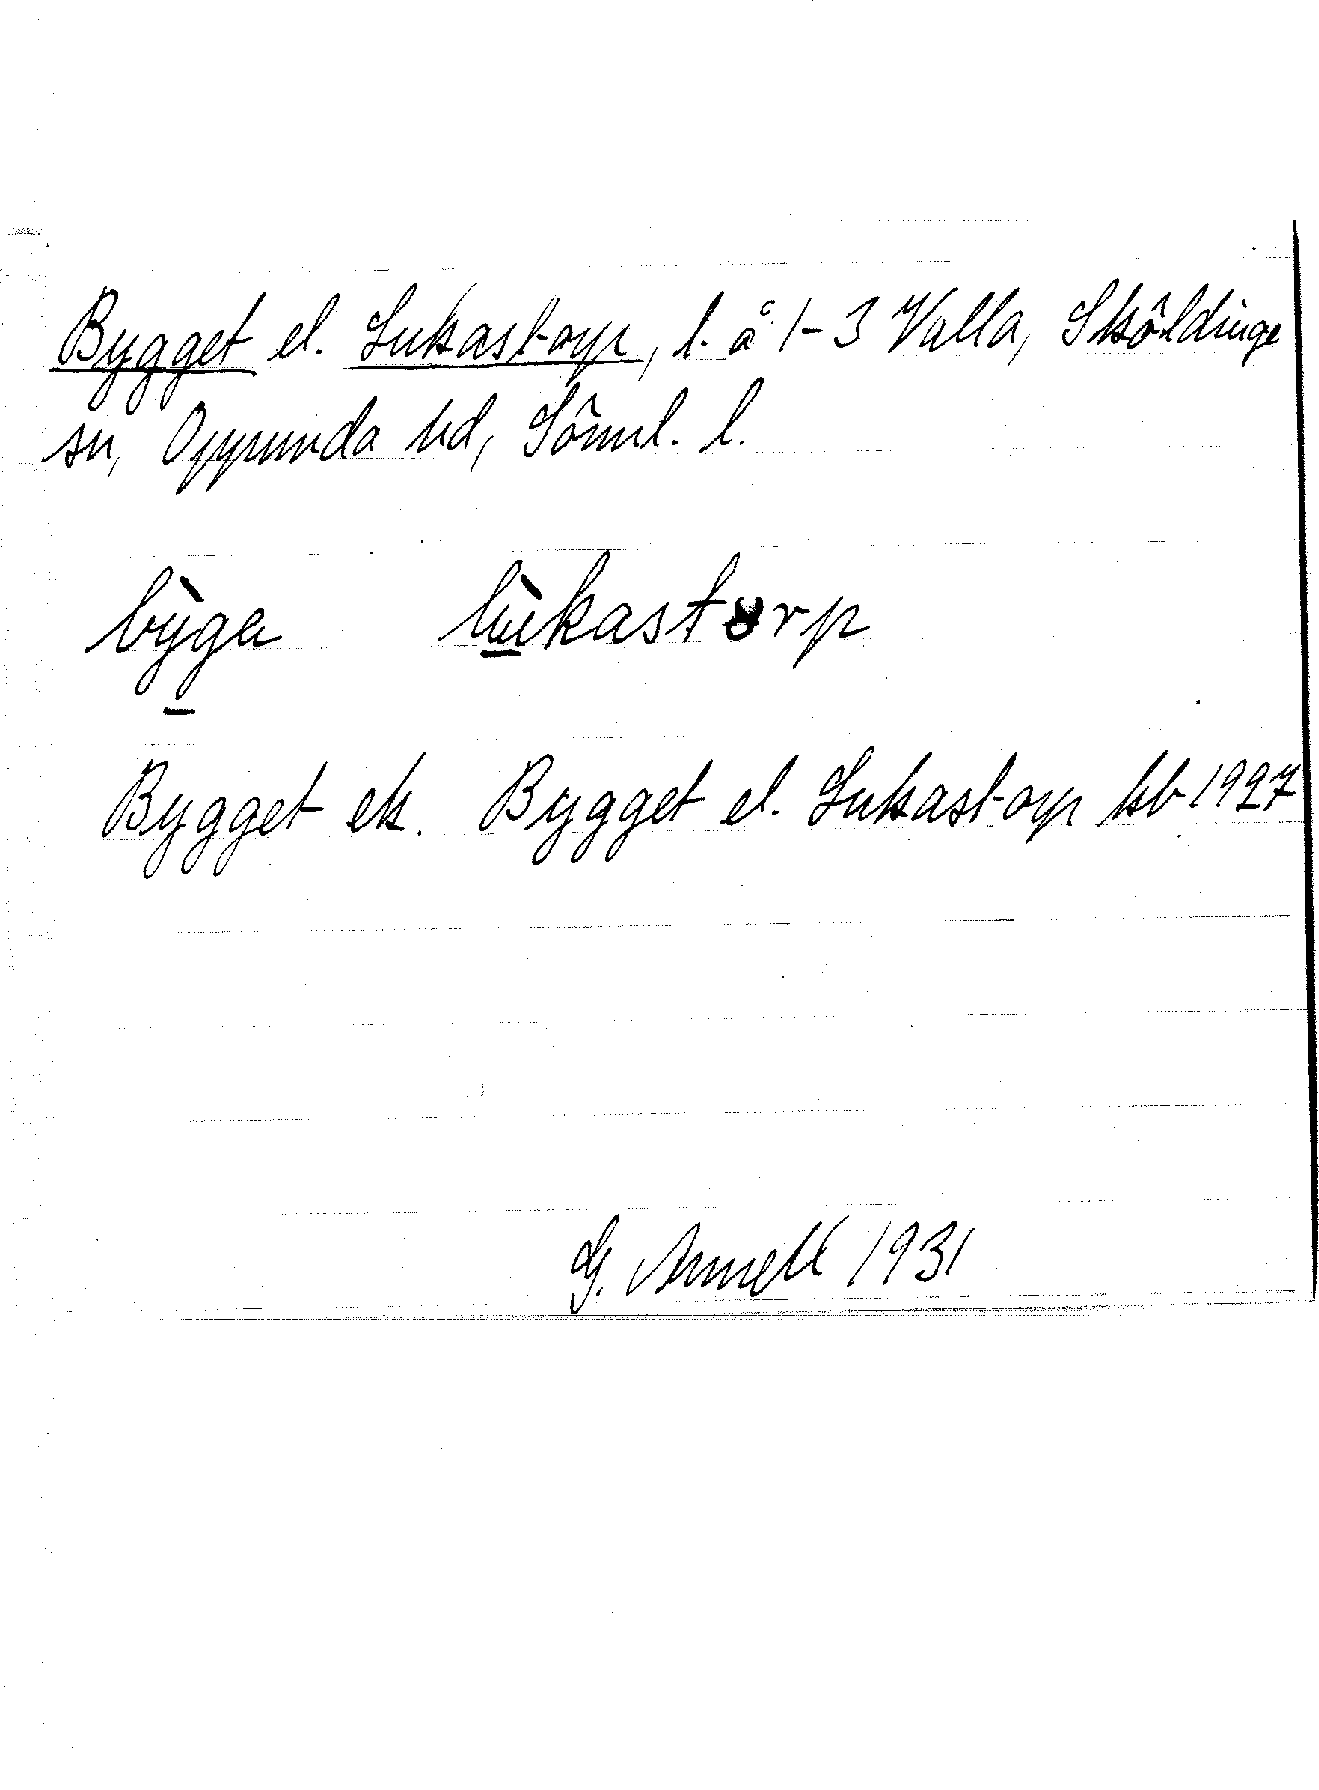 Bygget el. Lukastorp, l. å 1-3 Valla, Sköldinge
sn, Oppunda hd, Söml. l.
bỳga lùkastorp
Bygget ek. Bygget el. Lukastorp kb 1927
G. Annell 1931